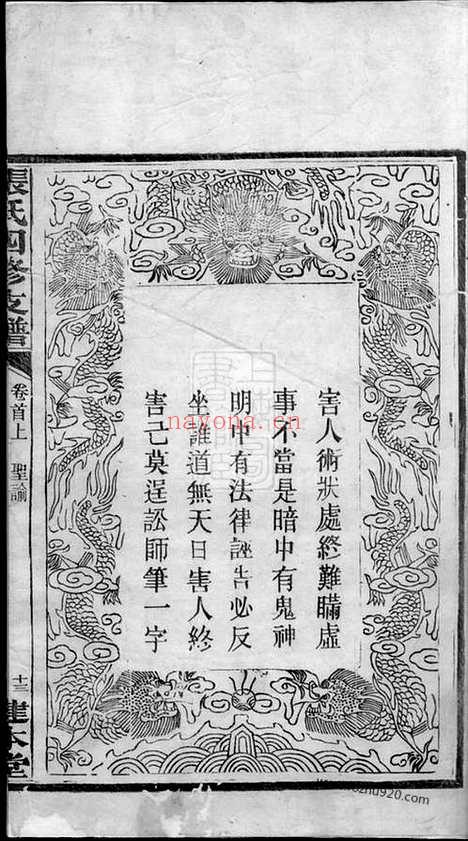 害人術狀處終難瞞虛
事不當是暗中有鬼神
明中有法律誣告必反
坐誰道無天日害人終
害己莫逞訟師筆一字
張氏四修支譜
卷首上
聖諭
十三
建本堂
nayona.cn